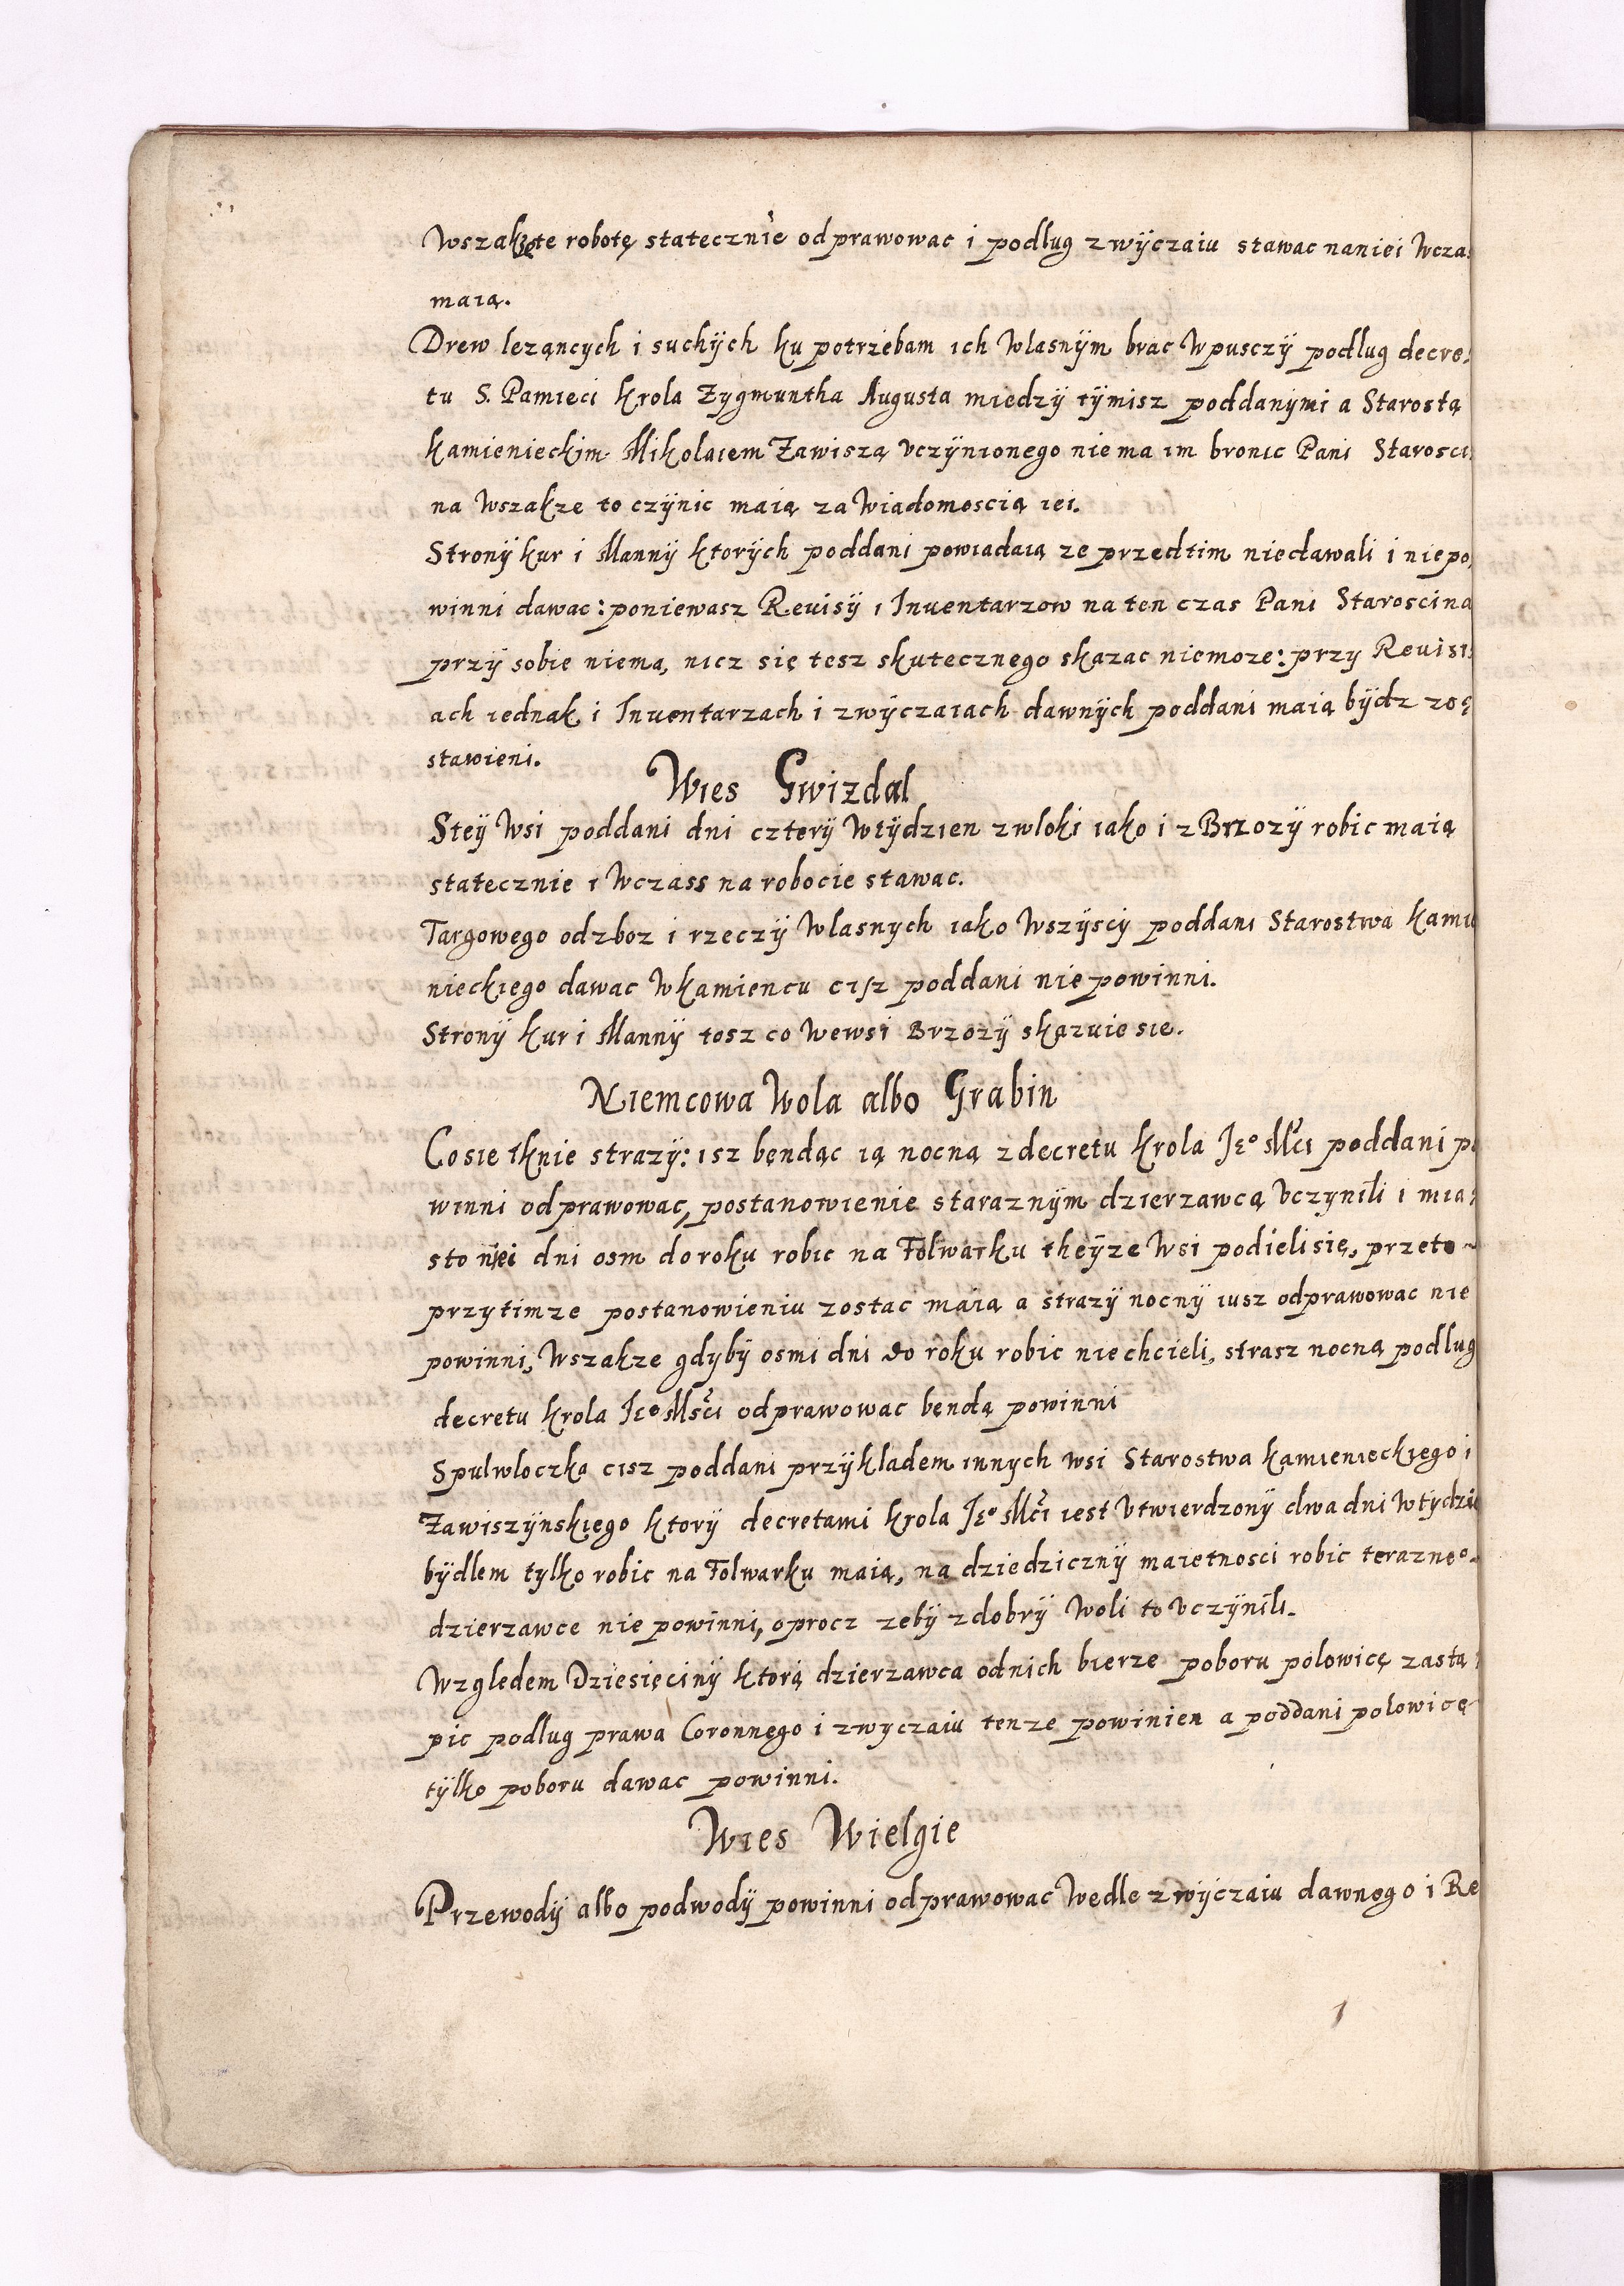 Wszakze te robotę statecznie odprawowac i podlug zwÿczaiu stawac naniei Wcza:
maią.
Drew lezących i suchÿch ku potrzebam ich Wlasnÿm brac Wpusczÿ podlug decre:
tu S. Pamięci Krola Zygmuntha Augusta miedzÿ tÿmisz poddanÿmi a Starostą
Kamienieckim Mikolaiem Zawiszą Vczÿnionego nie ma im bronic Pani Starosci:
na Wszakze to czÿnic maią za Wiadomoscią iei.
Stronÿ kur i Mannÿ ktorÿch poddani powiadaią ze przedtim niedawali i niepo,
winni dawac: poniewasz Revisÿ i Inuentarzow na ten czas Pani Staroscina
przÿ sobie niema, nicz się tesz skutecznego skazac niemoze: przy Revisi:
ach iednak i Inuentarzach i zwÿczaiach dawnÿch poddani maią bÿdz zo
stawieni.
Wies Gwizdal
Steÿ Wsi poddani dni czterÿ Wtÿdzien zwloki iako i z Brzozÿ robic maią
statecznie i Wczass na robocie stawac.
Targowego odzboz i rzeczÿ Wlasnych iako Wszÿscÿ poddani Starostwa Kamie
nieckiego dawac Wkamiencu cisz poddani nie powinni.
Stronÿ kur i Mannÿ tosz co Wewsi Brzozÿ skazuie sie.
Niemcowa Wola albo Grabin
Cosie tknie strazÿ: isz bęndąc ią nocną z decretu Krola Jeº Mći poddani po
winni odprawowac, postanowienie staraznÿm dzierzawcą Vczynili i mia:
sto niei dni osm do roku robic na Folwarku theÿze Wsi podielisię, przeto
przytimze postanowieniu zostac maią a strazÿ nocnÿ iusz odprawowac nie
powinni, Wszakze gdyby osmi dni do roku robic niechcieli, strasz nocną podlug
decretu Krola Jeº Mści odprawowac będą powinni
Spulwloczka cisz poddani przÿkladem innych wsi Starostwa Kamienieckiego i
Zawiszÿnskiego ktorÿ decretami Krola Jeº Mći iest Vtwierdzonÿ dwa dni Wtÿdzie
bÿdlem tylko robic na Folwarku maią, na dziedzicznÿ maietnosci robic terazneº
dzierzawce nie powinni, oprocz zebÿ z dobrÿ Woli to Vczÿnili.
Wzgledem Dziesięcinÿ ktorą dzierzawca odnich bierze poboru polowicę zastą:
pic podlug prawa Coronnego i zwyczaiu tenze powinien a poddani polowicę
tÿlko poboru dawac powinni.
Wies Wielgie
Przewodÿ albo podwodÿ powinni odprawowac Wedle zwÿczaiu dawnego i Re